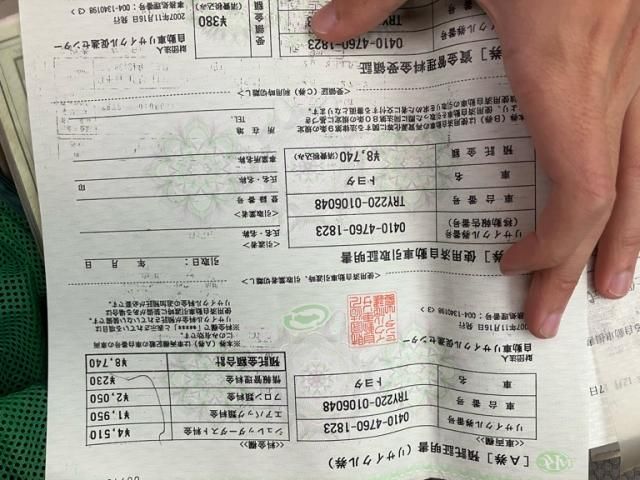 [A券] 預託証明書 (リサイクル券)
<<車両欄>>
リサイクル券番号 0410-4760-1823
車台番号 TRY220-0106048
車名 トヨタ
<<料金欄>>
シュレッダーダスト料金 ¥4,510
エアバッグ類料金 ¥1,950
フロン類料金 ¥2,050
情報管理料金 ¥230
預託金額合計 ¥8,740
財団法人
自動車リサイクル促進センター
2007年11月16日 発行
事務処理番号: 004-1340198 <3>
<使用済自動車引取時、引取業者切離し>
券] 使用済自動車引取証明書
引取日: 年 月 日
リサイクル券番号
(移動報告番号) 0410-4760-1823
車台番号 TRY220-0106048
車名 トヨタ
預託金額 ¥8,740(消費税込み)
<引渡者>
氏名・名称
<引取業者>
登録番号
氏名・名称 印
事業所名称
所在地
TEL
<受領証 (C券) 利用時切離し>
券] 資金管理料金受領証
0410-4760-1823
TRY220-0106048
受領金額 ¥380 (消費税込み)
財団法人
自動車リサイクル促進センター
2007年11月16日 発行
事務処理番号: 004-1340198 <3>